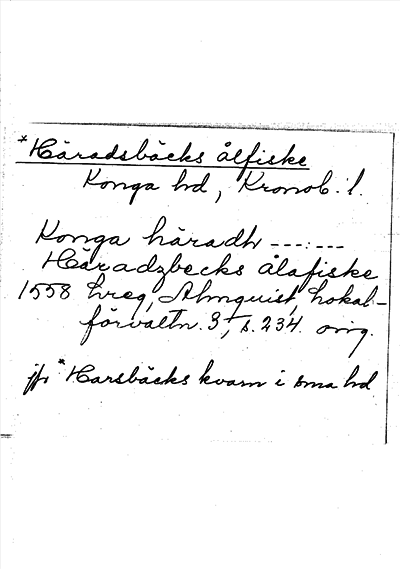 *Häradsbäcks ålfiske
Konga hd, Kronob. l.
Konga häradh ---:---
Häradzbecks ålafiske
1558 hreg, Almquist, Lokal-
förvaltn. 3, s. 234. orig.
jfr *Harsbäcks kvarn i sma hd